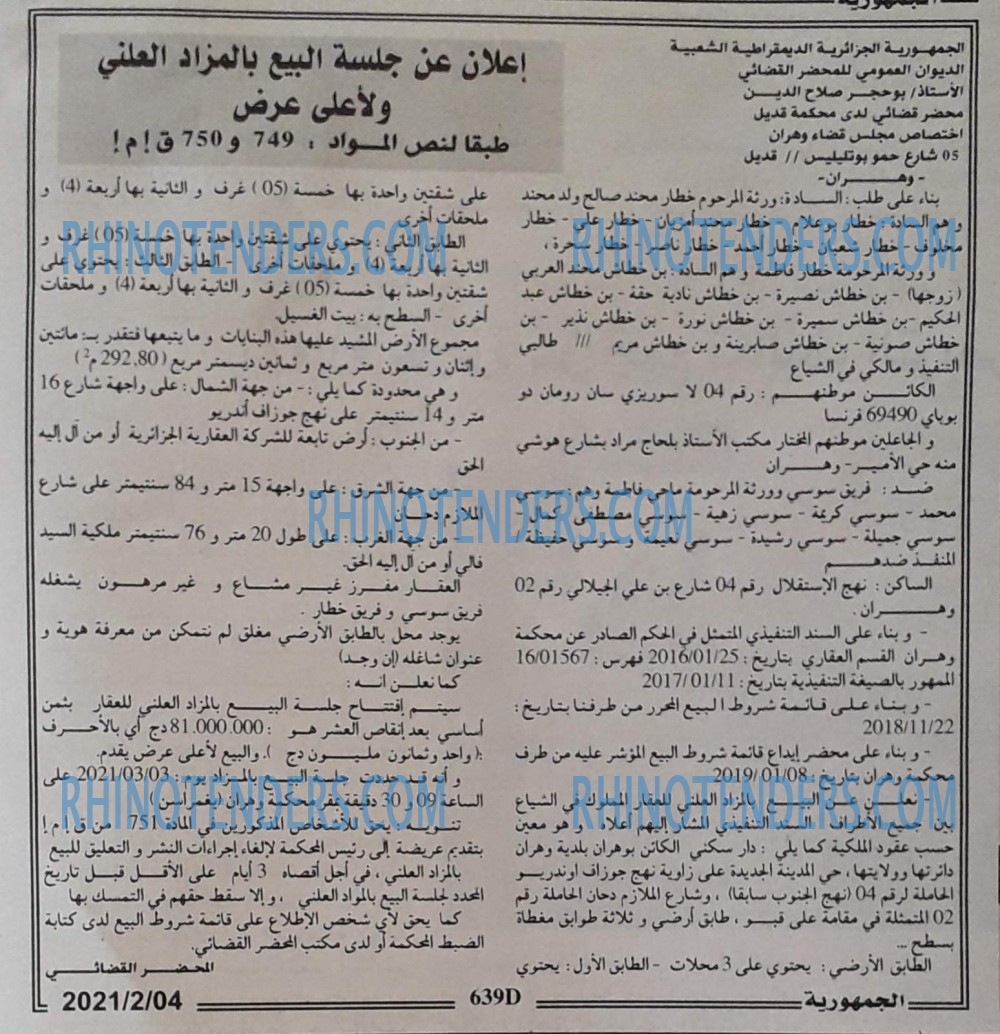 الجمهورية الجزائرية الديمقراطية الشعبية
الديوان العمومي للمحضر القضائي
الأستاذ/ بوحجر صلاح الدين
محضر قضائي لدى محكمة قديل
اختصاص مجلس قضاء وهران
05 شارع حمو بوتليليس // قديل
- وهران-
إعلان عن جلسة البيع بالمزاد العلني
ولأعلى عرض
طبقا لنص المواد : 749 و 750 ق إ م إ
بناء على طلب : السادة: ورثة المرحوم خطار محند صالح ولد محند
و هم السادة : خطار بوعلام - خطار محند أمزيان - خطار علي - خطار
مخلوف - خطار شعبان - خطار أحمد - خطار ناصر - خطار
و ورثة المرحومة خطار فاطمة و هم السادة : بن خطاش محند العربي
(زوجها) - بن خطاش نصيرة - بن خطاش نادية حقة - بن خطاش عبد
الحكيم -بن خطاش سميرة - بن خطاش نورة - بن خطاش نذير - بن
خطاش صونية - بن خطاش صابرينة و بن خطاش مريم /// طالبي
التنفيذ و مالكي في الشياع
الكائن موطنهم : رقم 04 لا سوريزي سان رومان دو
بوباي 69490 فرنسا
و الجاعلين موطنهم المختار مكتب الأستاذ بلحاج مراد بشارع هوشي
منه حي الأمير- وهران
ضد : فريق سوسي وورثة المرحومة ماحي فاطمة وهم : سوسي
محمد - سوسي كريمة - سوسي زهية - سوسي مصطفى كمال -
سوسي جميلة - سوسي رشيدة - سوسي نعيمة و سوسي حفيظة
المنفذ ضدهم
الساكن : نهج الإستقلال رقم 04 شارع بن علي الجيلالي رقم 02
وهران .
- و بناء على السند التنفيذي المتمثل في الحكم الصادر عن محكمة
وهران القسم العقاري بتاريخ : 2016/01/25 فهرس : 16/01567
الممهور بالصيغة التنفيذية بتاريخ : 2017/01/11
- و بناء على قائمة شروط البيع المحرر من طرفنا بتاريخ :
2018/11/22
- و بناء على محضر إيداع قائمة شروط البيع المؤشر عليه من طرف
محكمة وهران بتاريخ : 2019/01/08
- نعلن عن البيع بالمزاد العلني للعقار المملوك في الشياع
بين جميع الأطراف السند التنفيذي المشار إليهم أعلاه و هو معين
حسب عقود الملكية كما يلي : دار سكني الكائن بوهران بلدية وهران
دائرتها وولايتها ، حي المدينة الجديدة على زاوية نهج جوزاف اوندريو
الحاملة لرقم 04 (نهج الجنوب سابقا) ، وشارع الملازم دحان الحاملة رقم
02 المتمثلة في مقامة على قبو ، طابق أرضي و ثلاثة طوابق مغطاة
بسطح ...
الطابق الأرضي : يحتوي على 3 محلات - الطابق الأول: يحتوي
على شقتين واحدة بها خمسة (05) غرف و الثانية بها أربعة (4) و
ملحقات أخرى
الطابق الثاني : يحتوي على شقتين واحدة بها خمسة (05) غرف و
الثانية بها أربعة (4) و ملحقات أخرى - الطابق الثالث - يحتوي على
شقتين واحدة بها خمسة (05) غرف و الثانية بها أربعة (4) و ملحقات
أخرى - السطح به : بيت الغسيل.
مجموع الأرض المشيد عليها هذه البنايات و ما يتبعها فتقدر بـ: مائتين
و إثنان و تسعون متر مربع و ثمانين ديسمتر مربع (292.80 م2)
و هي محدودة كما يلي : - من جهة الشمال : على واجهة شارع 16
متر و 14 سنتيمتر على نهج جوزاف أندريو
- من الجنوب : أرض تابعة للشركة العقارية الجزائرية أو من آل إليه
الحق
- من جهة الشرق : على واجهة 15 متر و 84 سنتيمتر على شارع
الملازم دحان
- من جهة الغرب : على طول 20 متر و 76 سنتيمتر ملكية السيد
فالي أو من آل إليه الحق.
العقار مفرز غير مشاع و غير مرهون يشغله
فريق سوسي و فريق خطار .
يوجد محل بالطابق الأرضي مغلق لم نتمكن من معرفة هوية و
عنوان شاغله (إن وجد)
كما نعلن انه :
سيتم إفتتاح جلسة البيع بالمزاد العلني للعقار بثمن
أساسي بعد إنقاص العشر هو : 81.000.000 دج أي بالأحرف
:( واحد وثمانون مليون دج ). والبيع لأعلى عرض يقدم.
و أنه قد حددت جلسة البيع بالمزاد يوم : 2021/03/03 على
الساعة 09 و 30 دقيقة بمقر محكمة وهران (يغمراسن)
تنويه : يحق للأشخاص المذكورين في المادة 751 من ق إ م إ
بتقديم عريضة إلى رئيس المحكمة لإلغاء إجراءات النشر و التعليق للبيع
بالمزاد العلني ، في أجل أقصاه 3 أيام على الأقل قبل تاريخ
المحدد لجلسة البيع بالمزاد العلني ، وإلا سقط حقهم في التمسك بها
كما يحق لاي شخص الإطلاع على قائمة شروط البيع لدى كتابة
الضبط المحكمة أو لدى مكتب المحضر القضائي.
المحضر القضائي
الجمهورية
639D
2021/2/04
RHINOTENDERS.COM
RHINOTENDERS.COM
RHINOTENDERS.COM
RHINOTENDERS.COM
RHINOTENDERS.COM